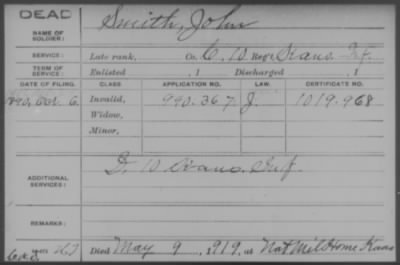 DEAD
NAME OF SOLDIER: Smith, John
SERVICE: Late rank, Co. C, 10 Reg't Kans. Inf.
TERM OF SERVICE: Enlisted , 1 Discharged , 1
DATE OF FILING. CLASS APPLICATION NO. LAW. CERTIFICATE NO.
Oct. 6 Invalid, 990.367 J. 1019.968
Widow,
Minor,
ADDITIONAL SERVICES: D. 10 Kans. Inf.
REMARKS:
Died May 9, 1919, at Nat Mil Home Kans